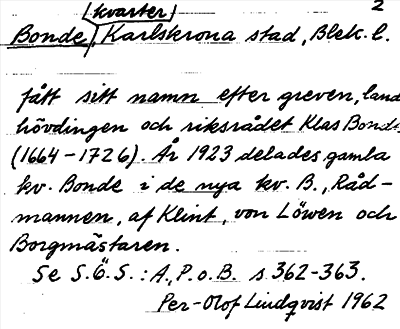 kvarter 2
Bonde, Karlskrona stad, Blek. l.
fått sitt namn efter greven, land
hövdingen och riksrådet Klas Bonde
(1664-1726). År 1923 delades gamla
kv. Bonde i de nya kv. B., Råd-
mannen, af Klint, von Löwen och
Borgmästaren.
Se S.Ö.S.: A., P. o. B. s. 362-363.
Per-Olof Lindqvist 1962